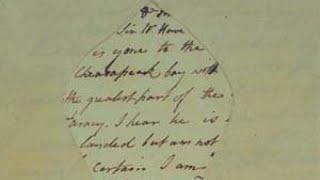 Sir W. Howe
is gone to the
Chesapeak bay with
the greatest part of the
army. I hear he is
landed but am not
certain. I am